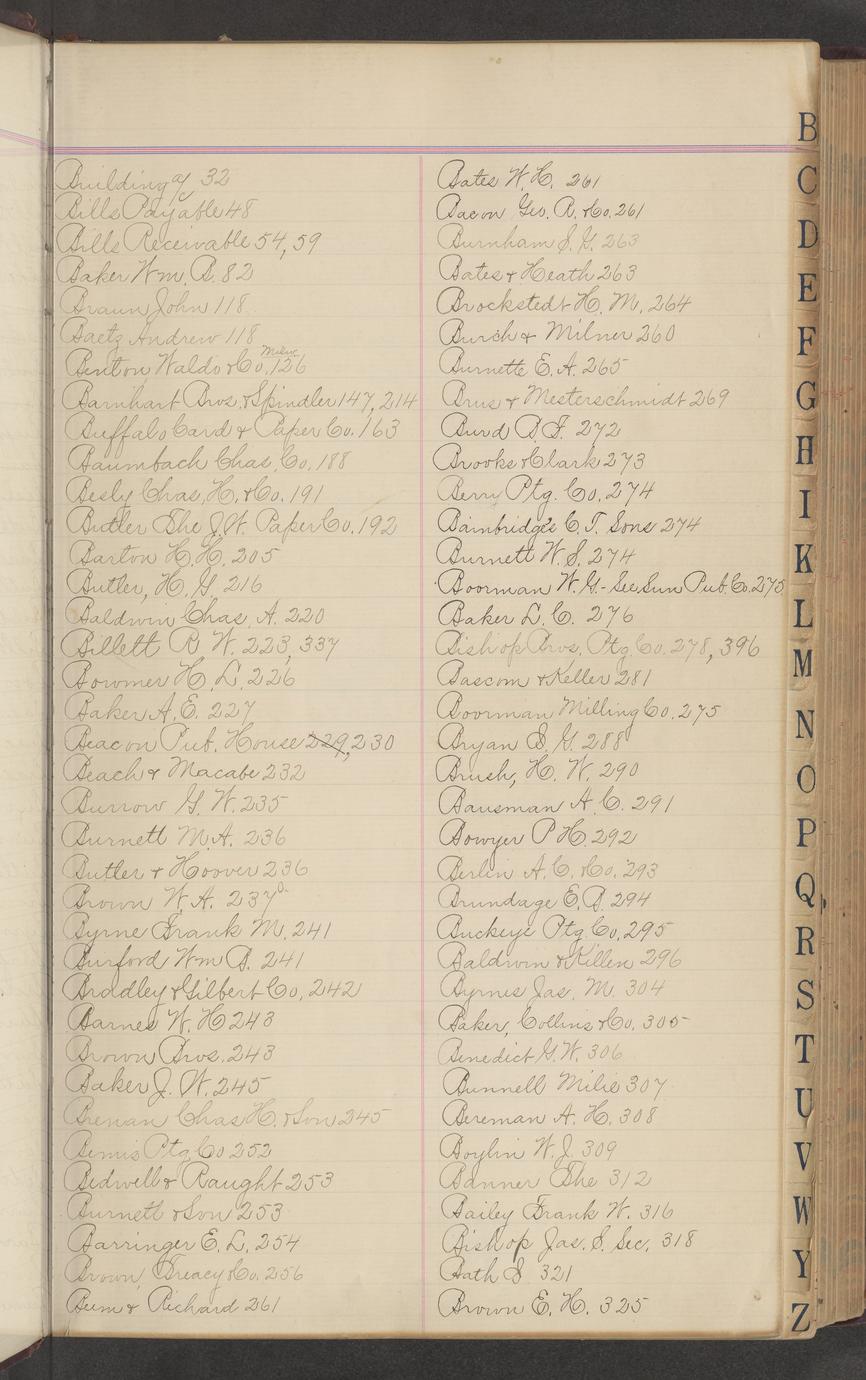 Building a/c 32
Bills Payable 48
Bills Receivable 54, 59
Baker Wm. B. 82
Braun John 118
Baetz Andrew 118
Benton Waldo & Co, Milw. 126
Barnhart Bros. & Spindler 147, 214
Buffalo Card & Paper Co. 163
Baumbach Chas. Co. 188
Besly Chas. H. & Co. 191
Butler The J. W. Paper Co. 192
Barton H. H. 205
Butler, H. G. 216
Baldwin Chas. A. 220
Billett R W. 223, 337
Bowmer H. L. 226
Baker A. E. 227
Beacon Pub. House 229, 230
Beach & Macabe 232
Burrow G. W. 235
Burnett M. A. 236
Butler & Hoover 236
Brown W. A. 237
Byrne Frank M. 241
Burford Wm B. 241
Bradley & Gilbert Co, 242
Barnes W. H 243
Brown Bros. 243
Baker J. W. 245
Brenan Chas H. & Son 245
Bemis Ptg Co 252
Bidwell & Raught 253
Burnett & Son 253
Barringer E. L. 254
Brown, Treacy & Co. 256
Beem & Richard 261
Bates W. H. 261
Bacon Geo. R. & Co. 261
Burnham S. G. 263
Bates & Heath 263
Brockstedt H. M. 264
Burch & Milner 260
Burnette E. A. 265
Brus & Mesterschmidt 269
Burd B. F. 272
Brooks & Clark 273
Berry Ptg. Co. 274
Bainbridge's C T. Sons 274
Burnett W. S. 274
Boorman W. G. - See Sun Pub. Co. 275
Baker L. C. 276
Bishop Bros. Ptg Co. 278, 396
Bascom & Keller 281
Boorman Milling Co. 275
Bryan S. G. 288
Brush, H. W. 290
Bausman A. C. 291
Bowyer P H. 292
Berlin A. C. & Co. 293
Brundage E. B. 294
Buckeye Ptg Co, 295
Baldwin & Killen 296
Byrnes Jas. M. 304
Baker, Collins & Co. 305
Benedict G. W. 306
Bunnell Milie 307
Bereman A. H. 308
Boylin W. J. 309
Banner The 312
Bailey Frank W. 316
Bishop Jas. S. Sec. 318
Bath S 321
Brown E. H. 325
B
C
D
E
F
G
H
I
K
L
M
N
O
P
Q
R
S
T
U
V
W
Y
Z